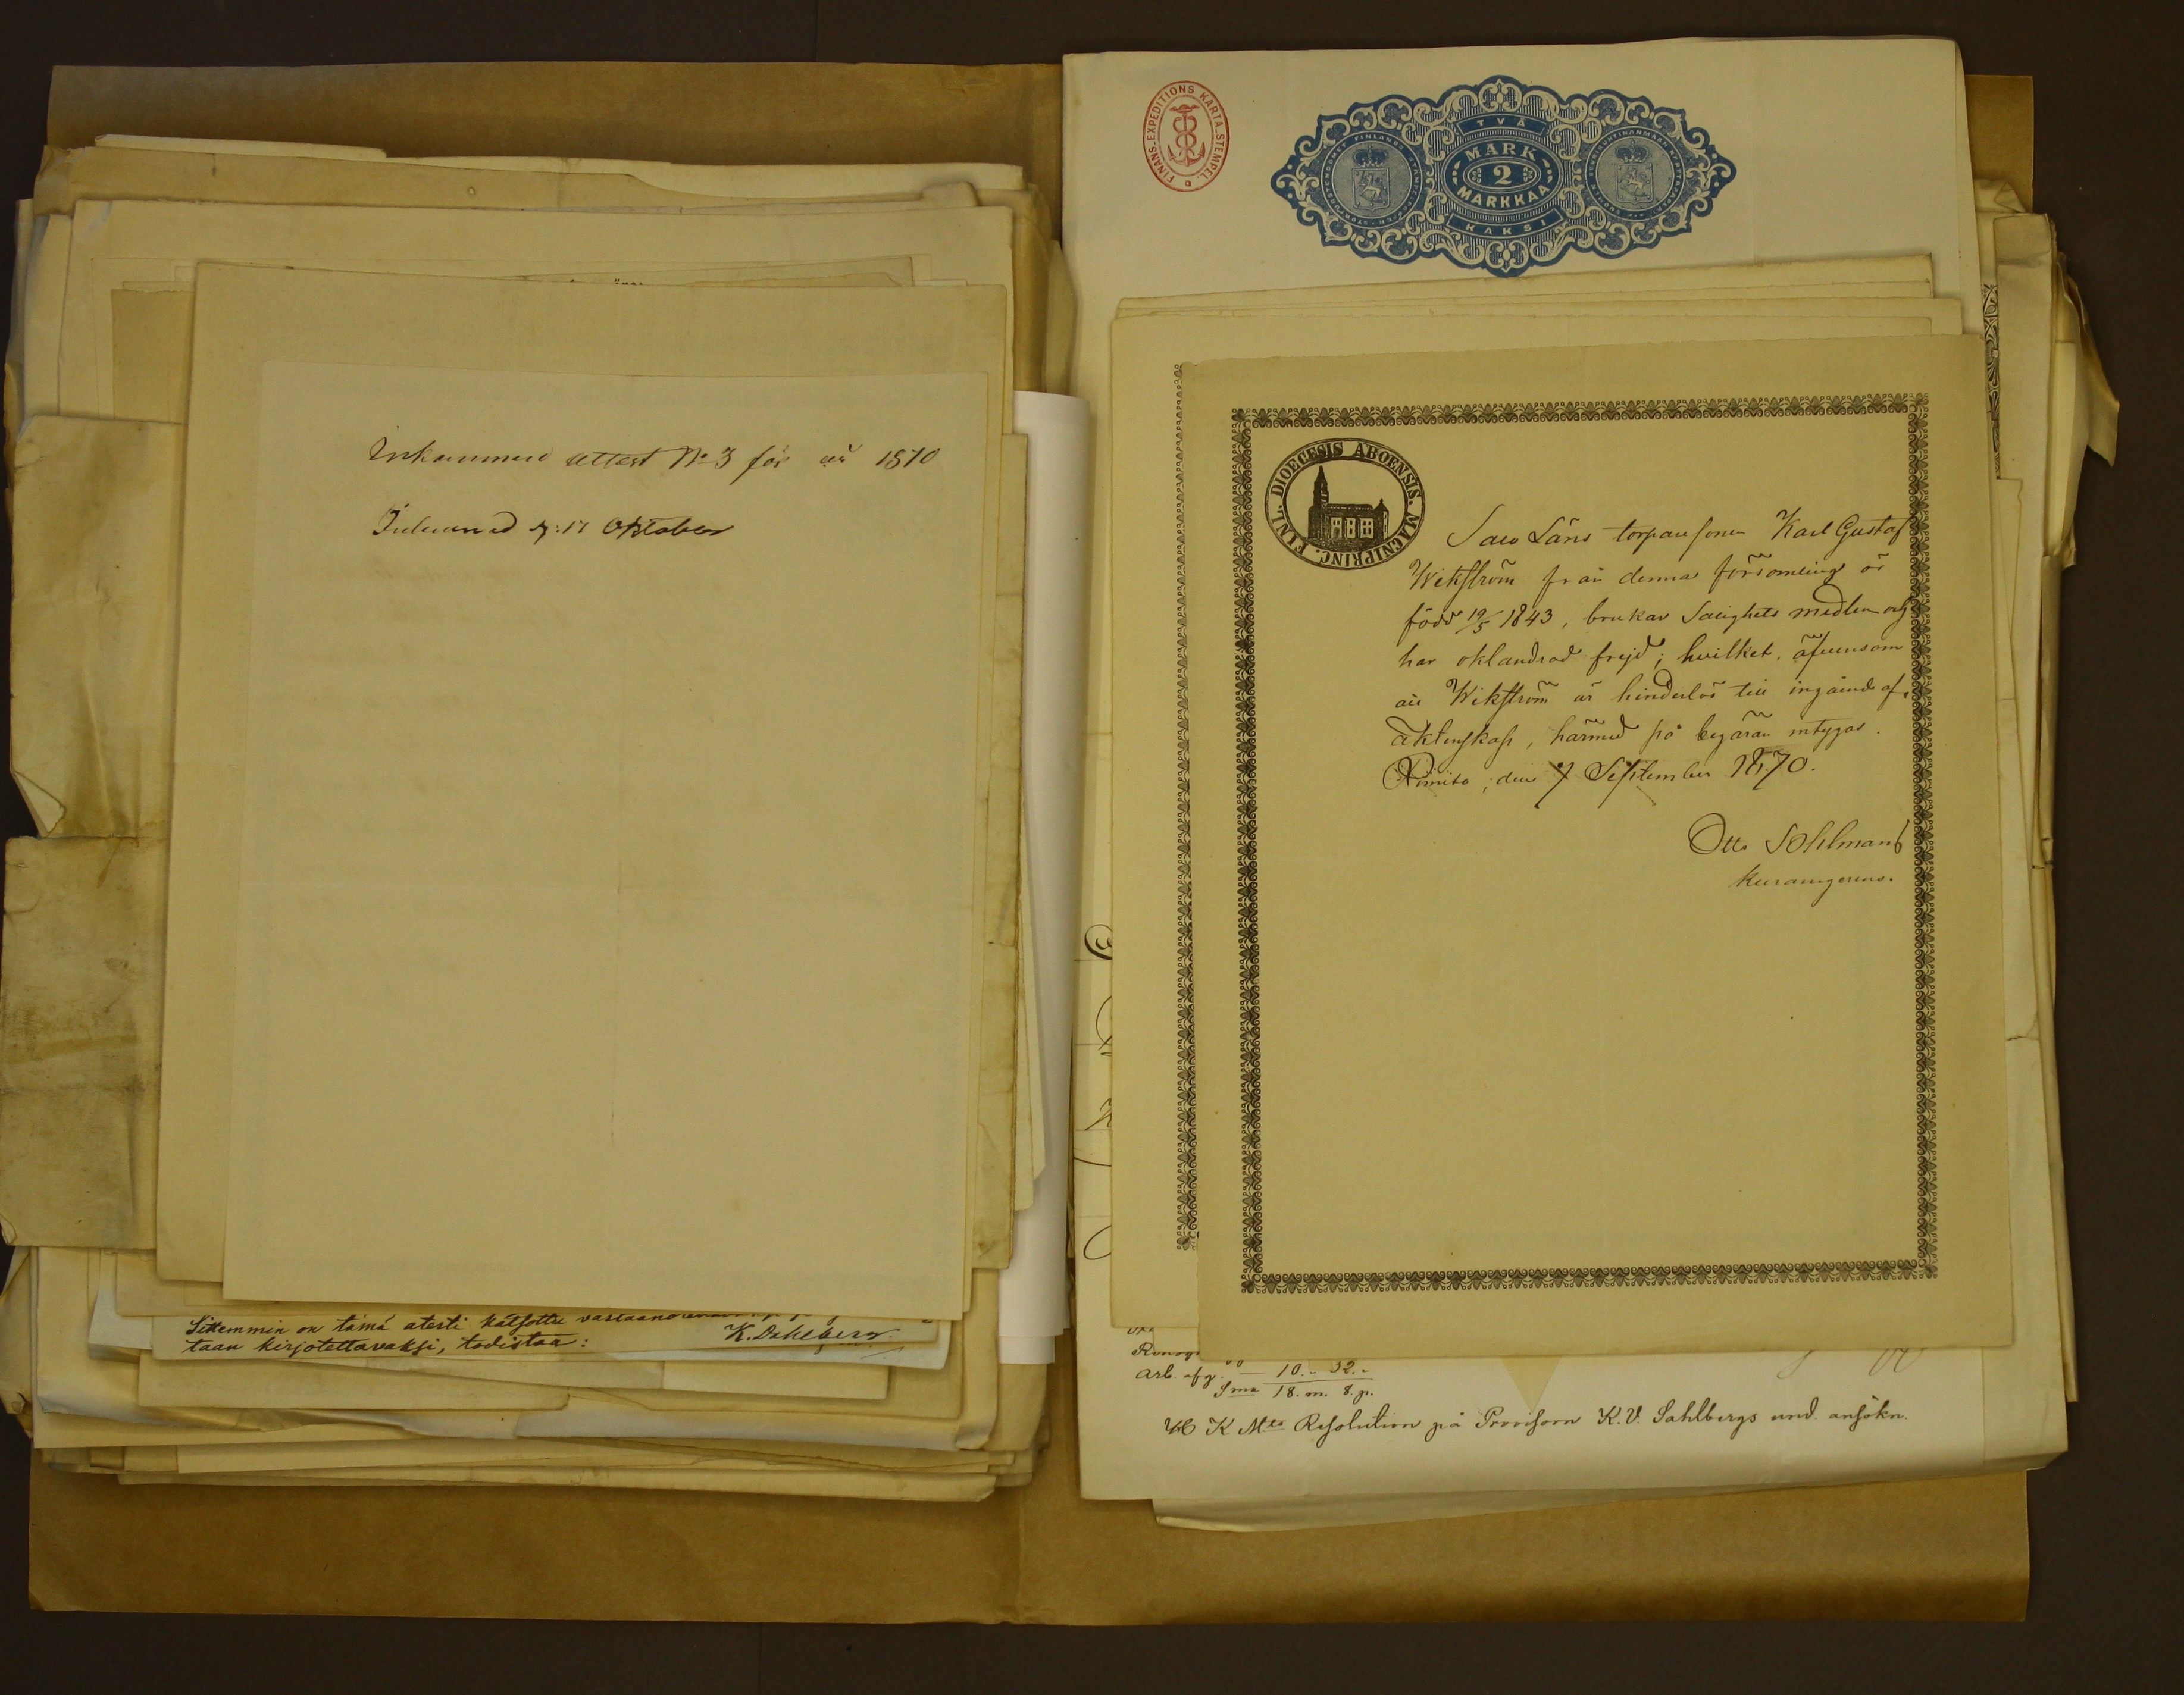 Inkommen attest No 3 för år 1870
d. 17 Oktober
Sittemmin on tämä atesti katsottu
taan kirjotettavaksi, todistaa:
K. Dahlberg
FINANS-EXPEDITIONS KARTA-STEMPEL.
TVÅ
MARK
2
MARKKA
KAKSI
FINL. DIOECESIS ABOENSIS. MAGNI PRINC.
Läns torparsonen Karl Gustaf
Wikström från denna församling är
född 19/5 1843, brukar Salighets medlen och
har oklandrad frejd; hvilket, äfvensom
att Wikström är hinderlös till ingående af
äktenskap, härmed på begäran intygas.
Kimito, den 7 September 1870.
Otto
Arb. afg. — 10. - 32. -
Sma 18. m. 8. p.
K Mts Resolution på Provisorn K. V. Sahlbergs und. ansökn.